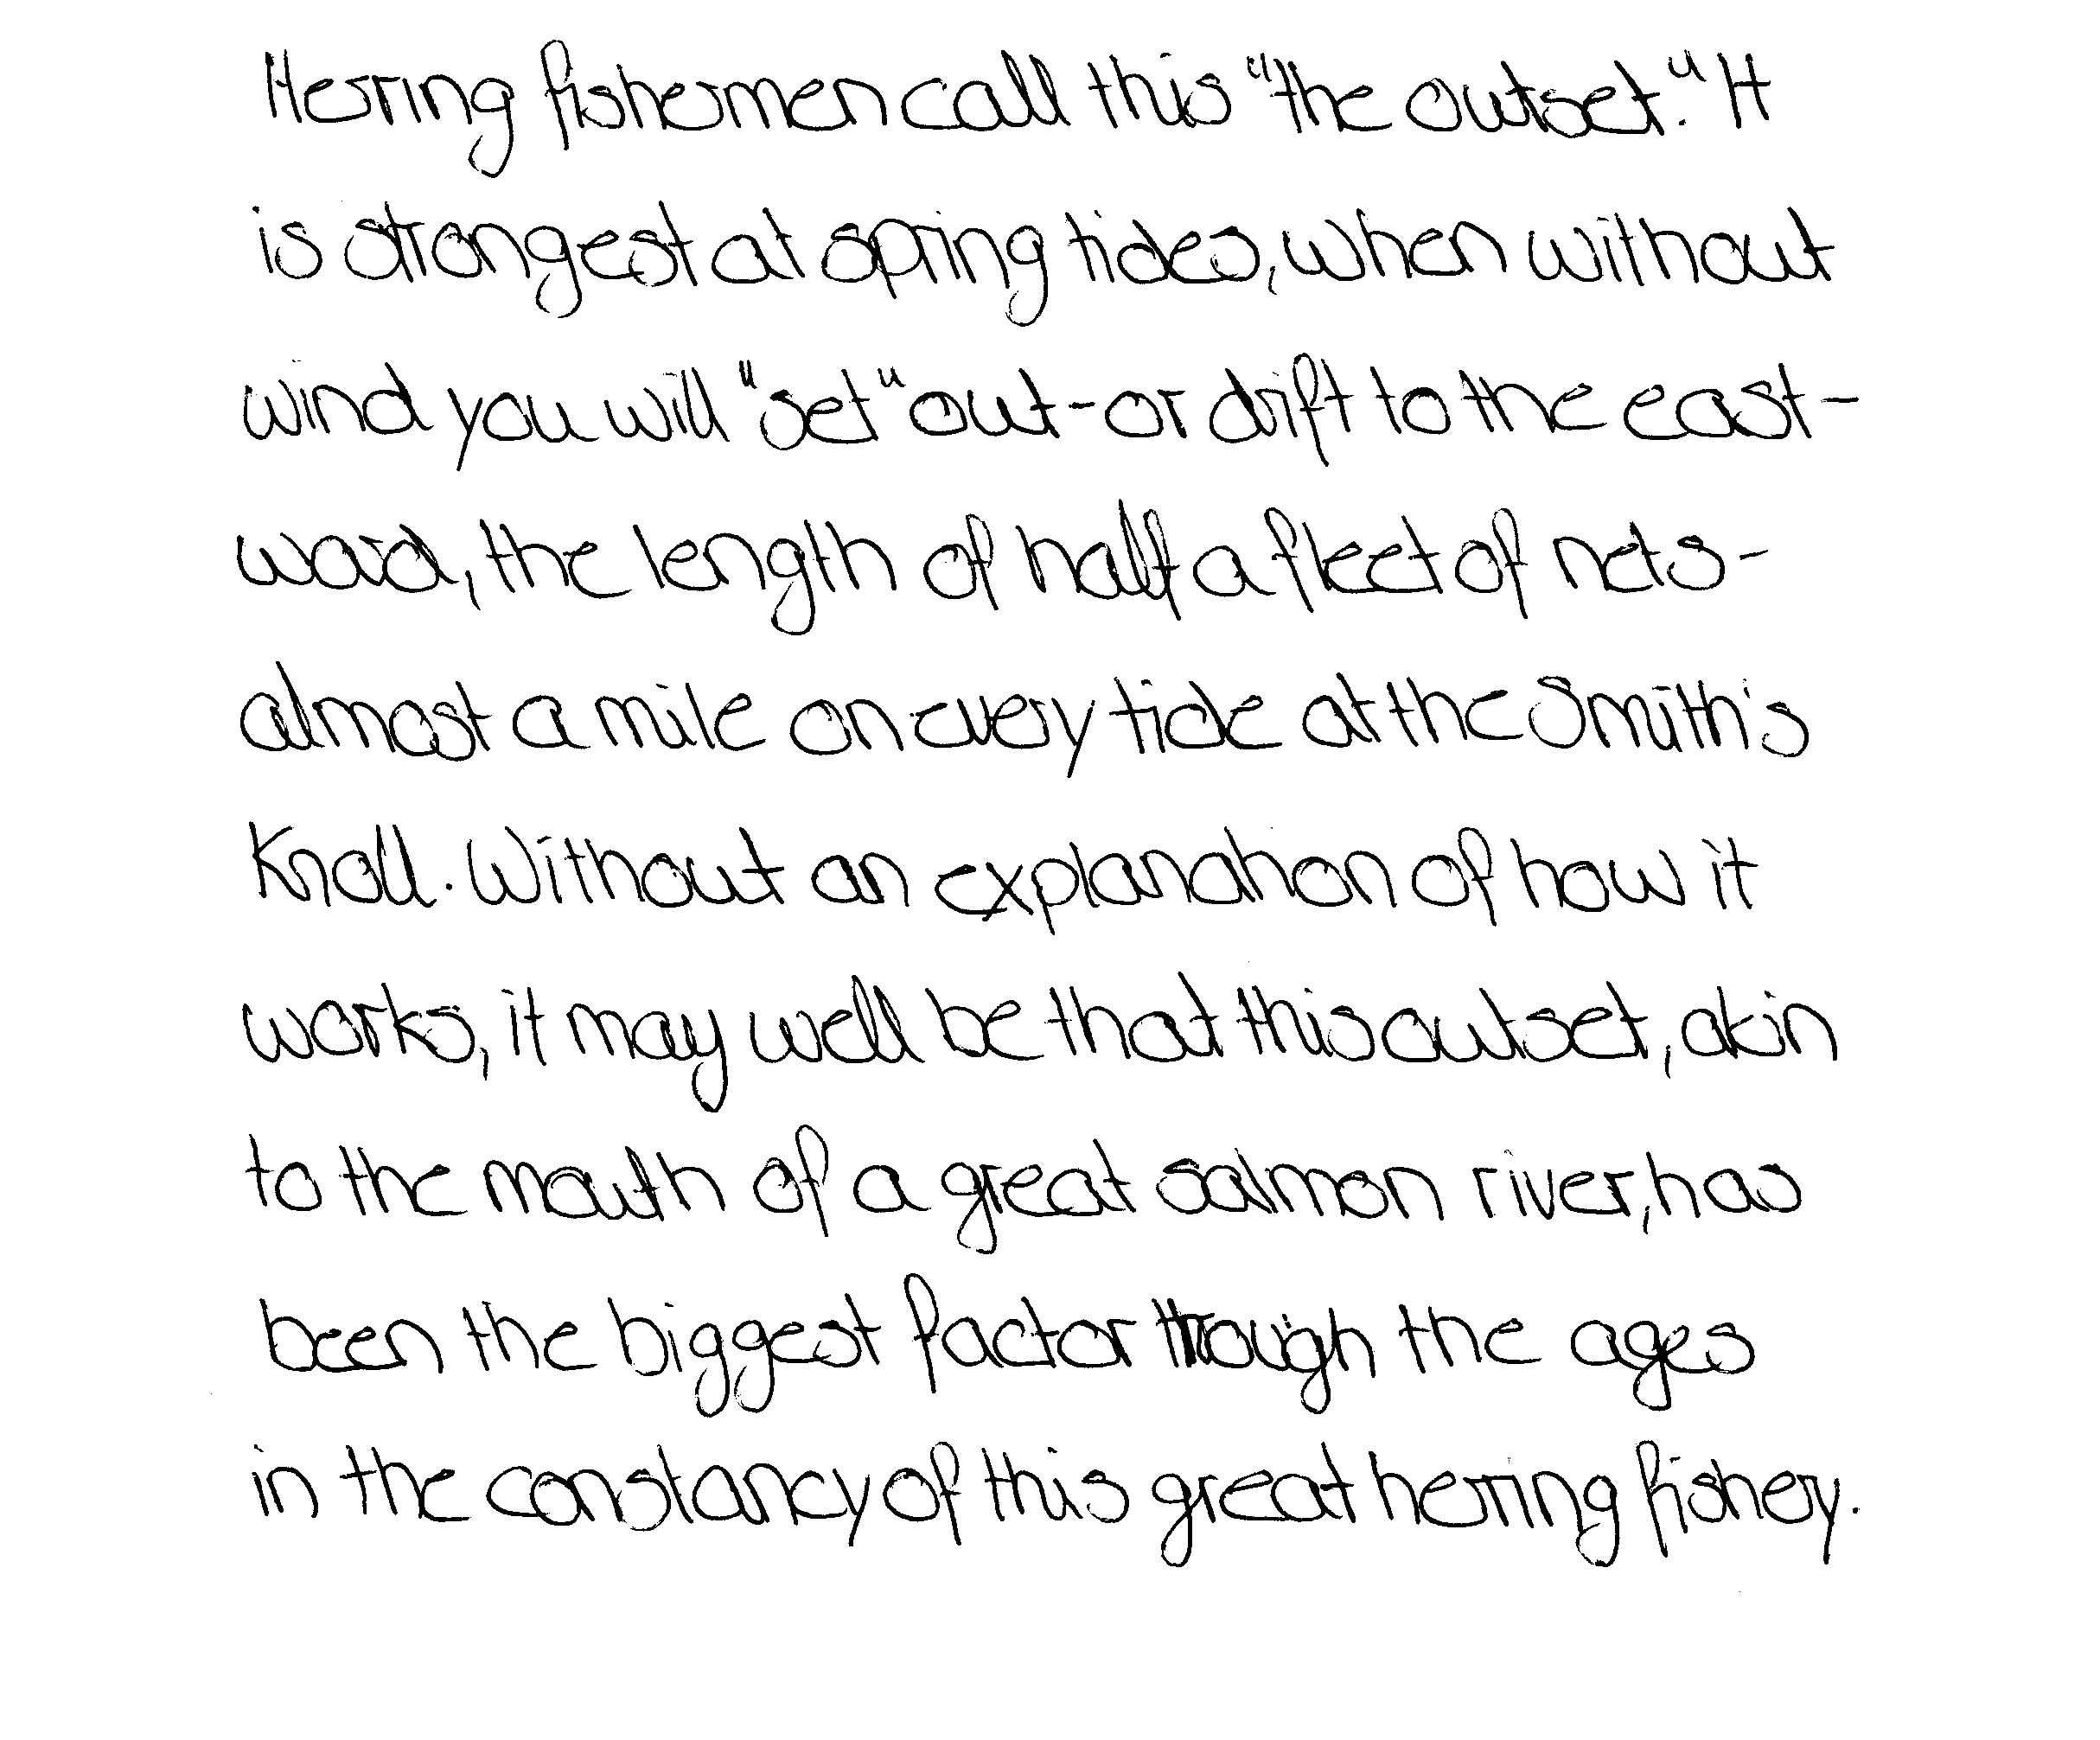 Herring fishermen call this "the outset." It
is strongest at spring tides, when without
wind you will "set" out-or drift to the east-
ward, the length of half a fleet of nets-
almost a mile on every tide at the Smith's
Knoll. Without an explanation of how it
works, it may well be that this outset, akin
to the mouth of a great salmon river, has
been the biggest factor through the ages
in the constancy of this great herring fishery.